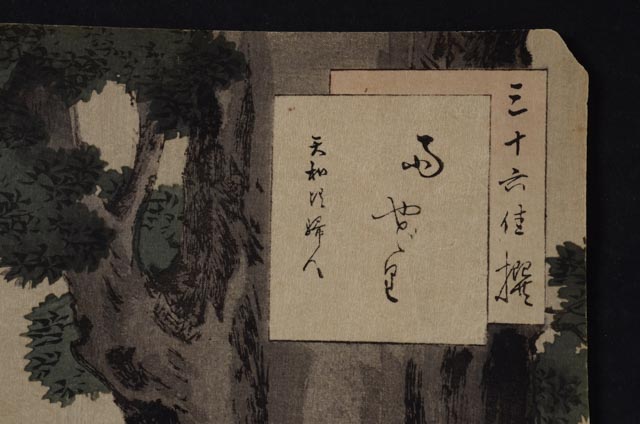 三十六佳撰
雨やどり
天和頃婦人